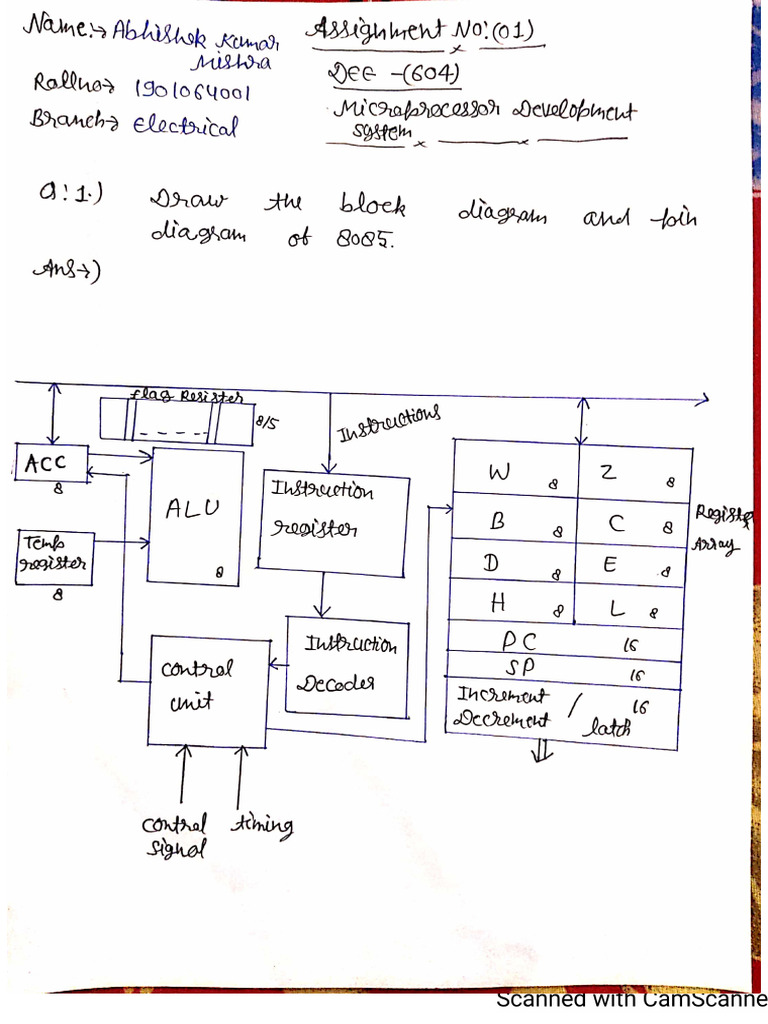 Name:→ Abhishek Kumar
Mishra
Rollno→ 1901064001
Branch→ Electrical
Assignment No:(01)
DEE -(604)
Microprocessor Development
System
Q:1.) Draw the block diagram and pin
diagram of 8085.
Ans→)
flag Register
8/5
Instructions
ACC
8
ALU
8
Temp
register
8
Instruction
register
Instruction
Decoder
control
unit
control
signal
timing
W 8 Z 8
B 8 C 8
D 8 E 8
H 8 L 8
PC 16
SP 16
Increment / 16
Decrement latch
Register
Array
Scanned with CamScanne